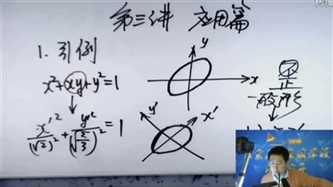 第三讲 应用篇
1. 引例
x²+xy+y²=1
x'²/(√2)²+y'²/(√(2/3))²=1
y
x
y'
x'
正